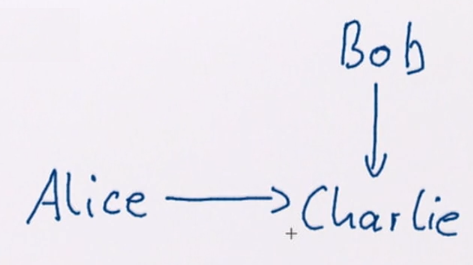 Bob
Alice Charlie